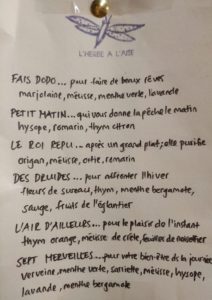 L'HERBE A L'AISE
FAIS DODO... pour faire de beaux rêves
marjolaine, mélisse, menthe verte, lavande
PETIT MATIN... qui vous donne la pêche le matin
hysope, romarin, thym citron
LE ROI REPU... après un grand plat; elle purifie
origan, mélisse, ortie, romarin
DES DRUIDES... pour affronter l'hiver
fleurs de sureau, thym, menthe bergamote,
sauge, fruits de l'églantier
L'AIR D'AILLEURS... pour le plaisir de l'instant
thym orange, mélisse de crète, feuilles de noisetier
SEPT MERVEILLES... pour votre bien-être de la journée
verveine, menthe verte, sarriette, mélisse, hysope,
lavande, menthe bergamote